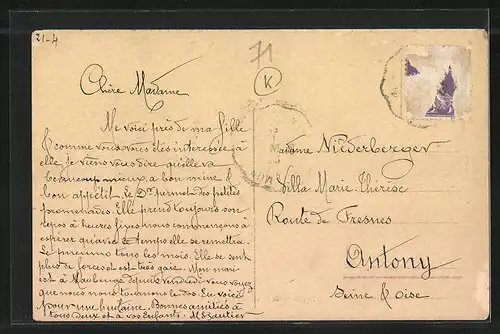 21-4
71
K
Chère Madame
Me voici près de ma fille
& comme vous vous êtes intéressée à
elle je viens vous dire qu'elle va
beaucoup mieux, a bon mine &
bon appétit. Le Dr permet des petites
promenades. Elle prend toujours son
repos à heures fixes nous commençons à
espérer qu'avec le temps elle se remettra.
Le pneumo tous les mois. Elle se sent
plus de forces et est très gaie. Mon mari
est à Maubeuge depuis vendredi vous voyez
que nous nous tournons le dos. En voici
pour une huitaine. Bonnes amitiés à
tous deux et à vos Enfants.
Madame Niederberger
Villa Marie Thérèse
Route de Fresnes
Antony
Seine & Oise